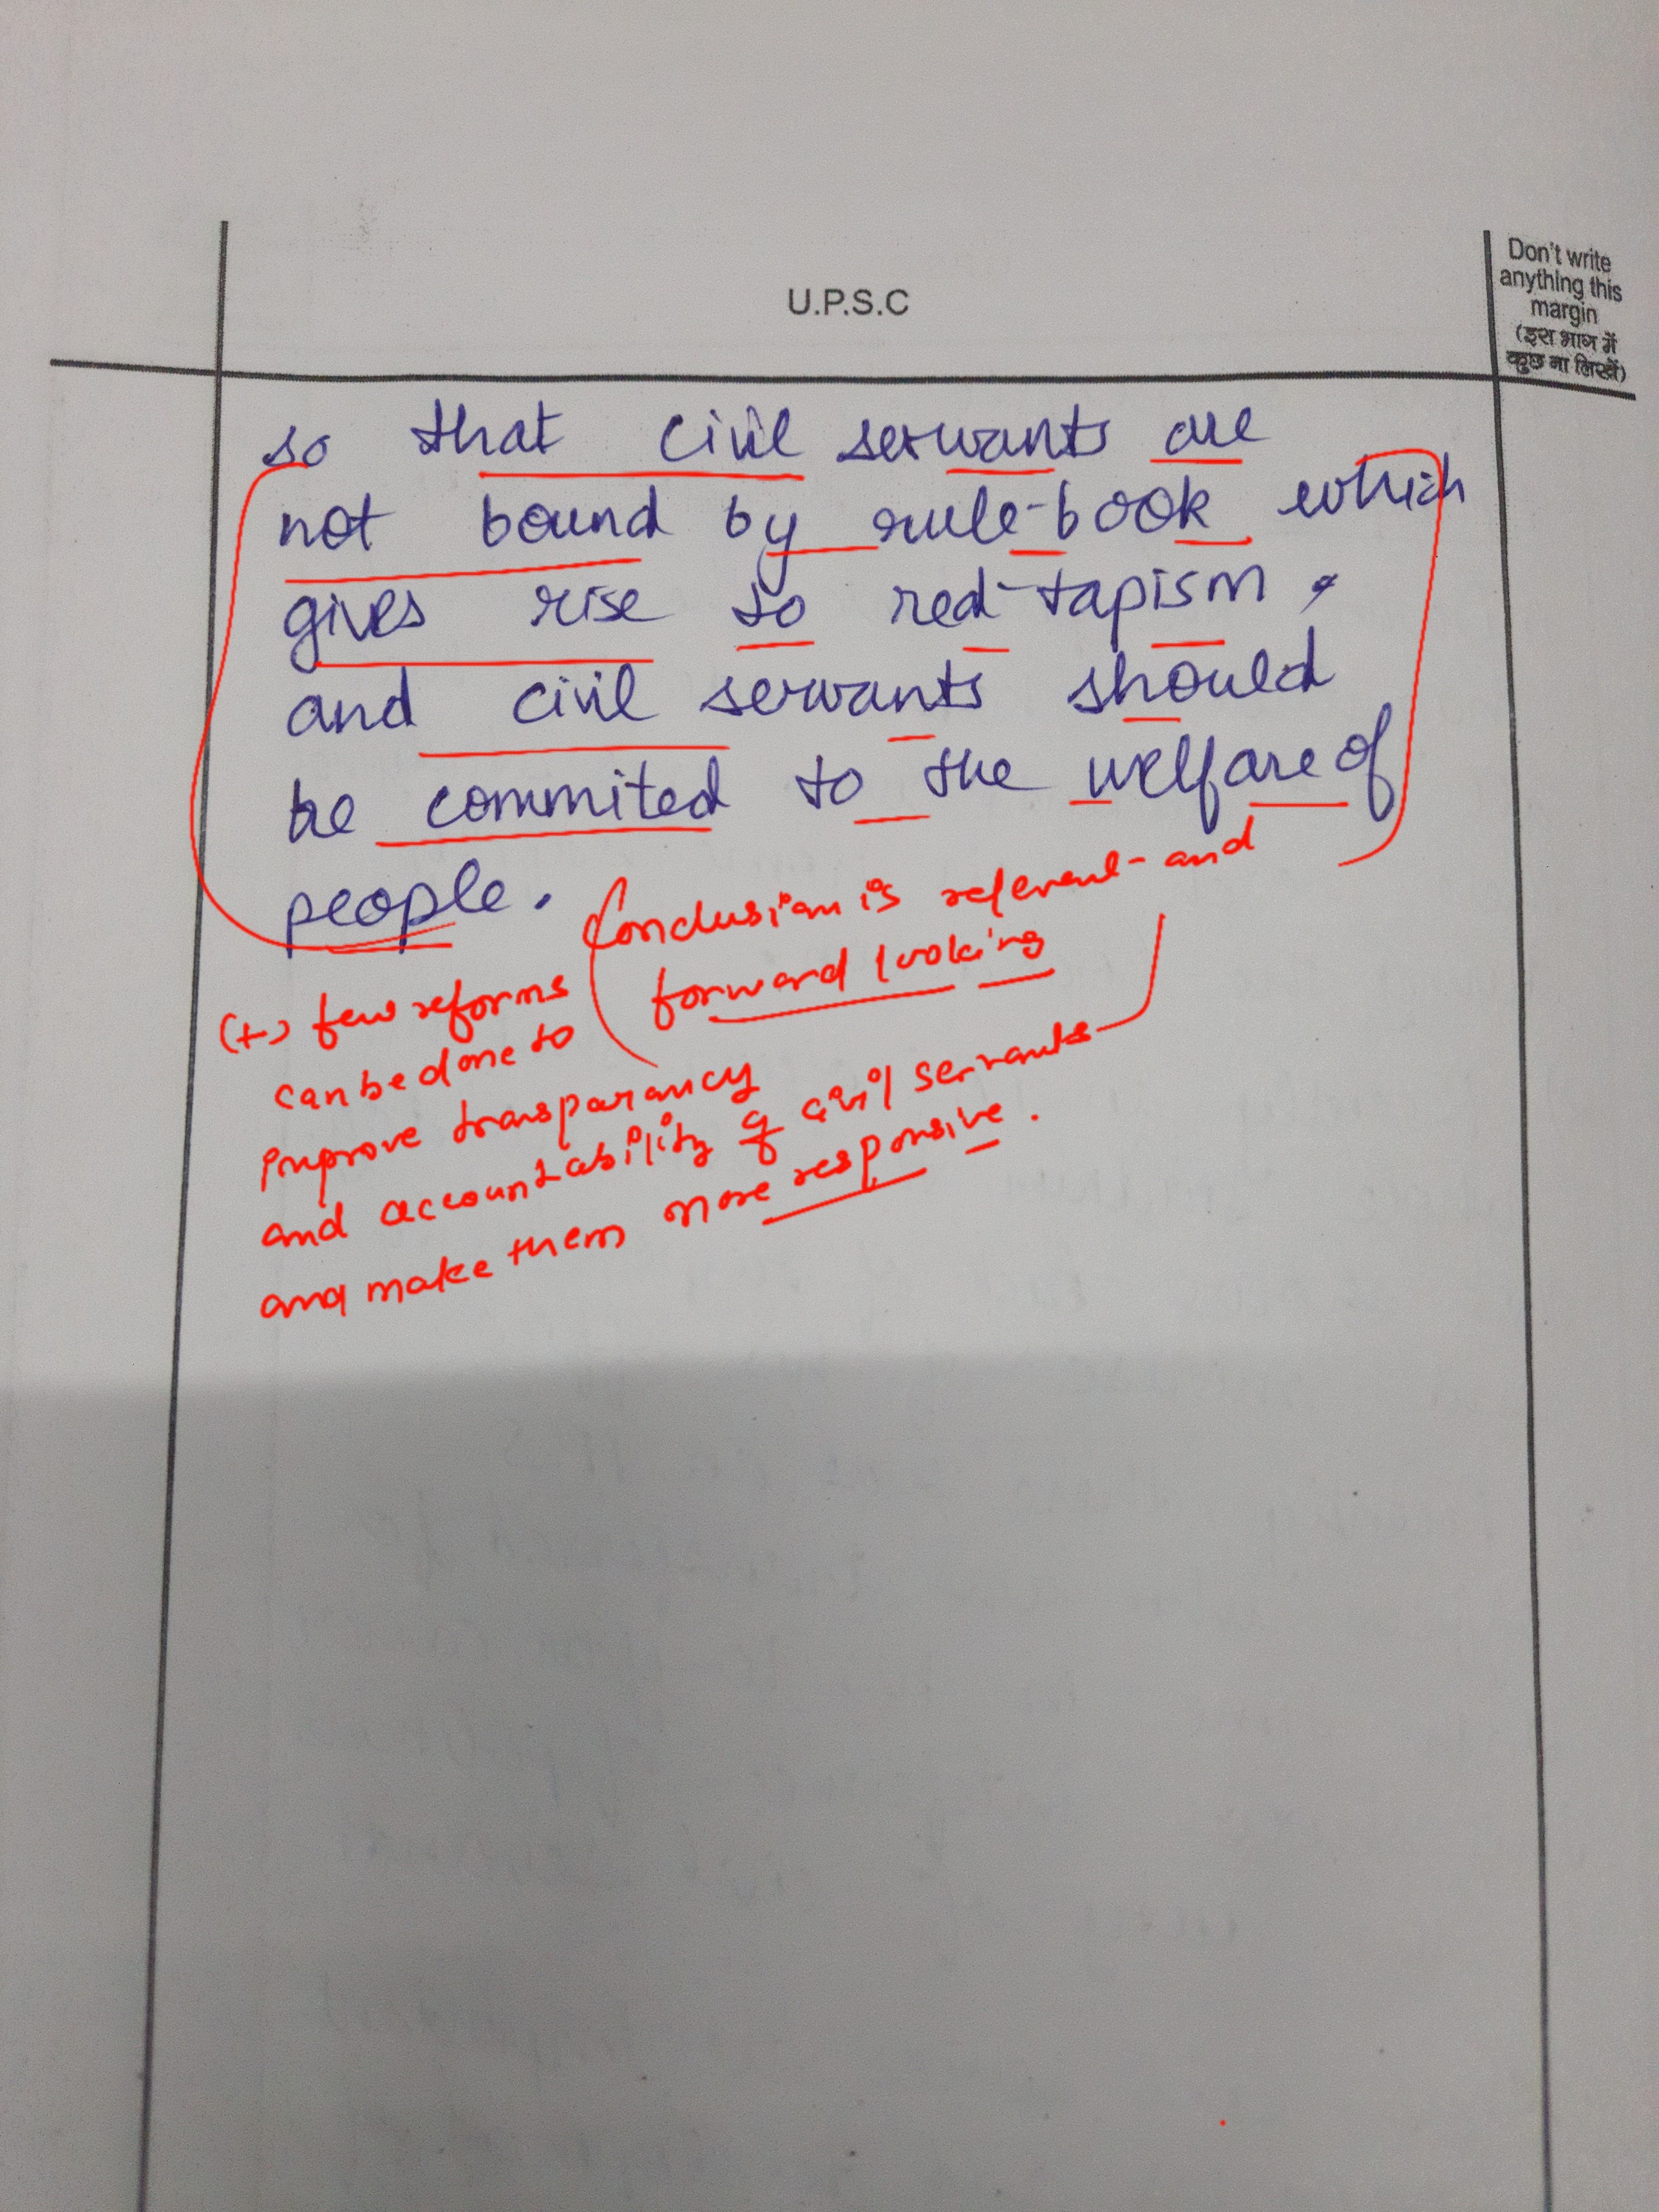 U.P.S.C
Don't write
anything this
margin
(इस भाग में
कुछ ना लिखें)
so that civil servants are
not bound by rule-book which
gives rise to red-tapism,
and civil servants should
be commited to the welfare of
people.
Conclusion is relevant and
forward looking
(+) few reforms
can be done to
improve transparancy
and accountability of civil servants
and make them more responsive.